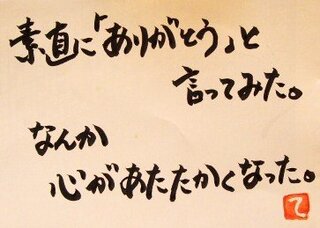 素直に「ありがとう」と
言ってみた。
なんか
心があたたかくなった。
て